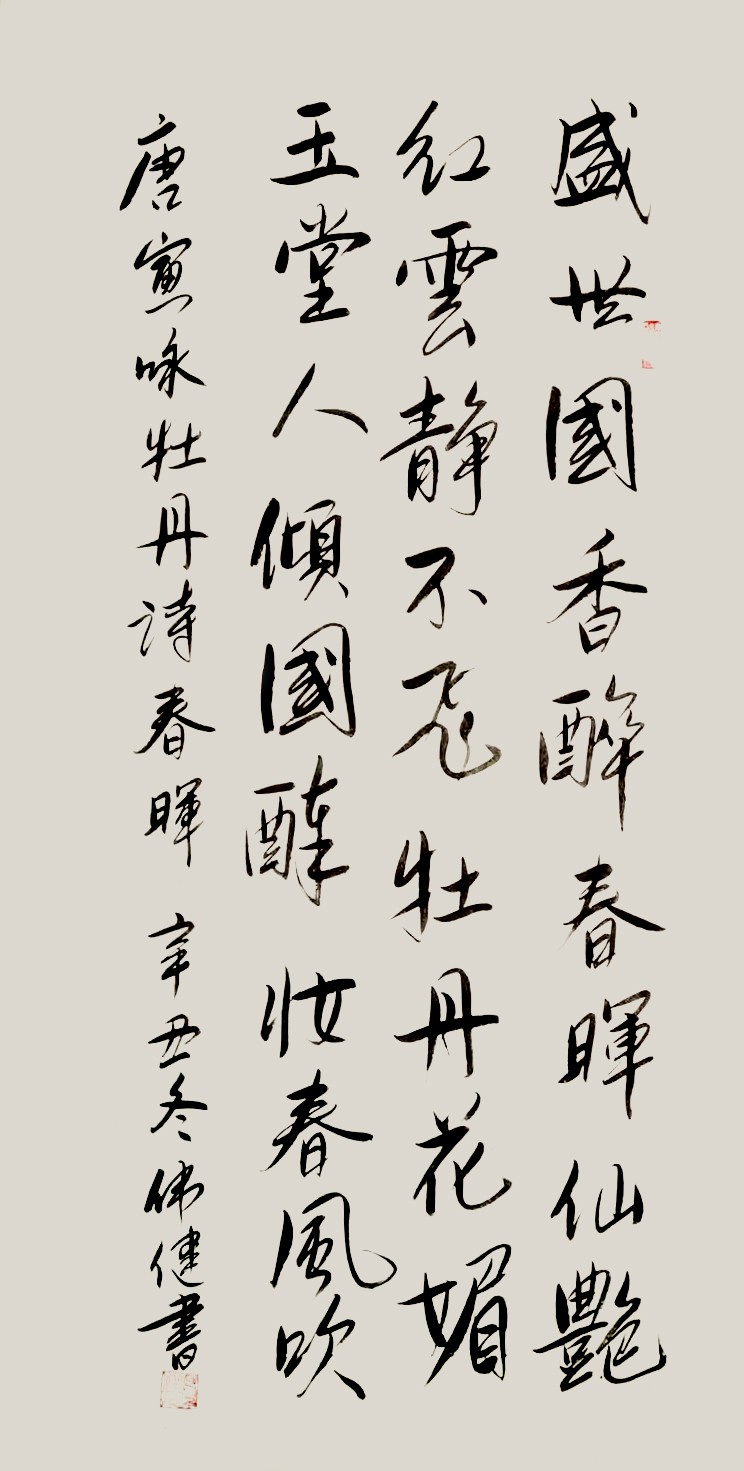 盛世國香醉春暉仙艷
紅雲靜不飛牡丹花媚
玉堂人傾國醉妝春風吹
唐寅咏牡丹詩春暉 辛丑冬偉健書